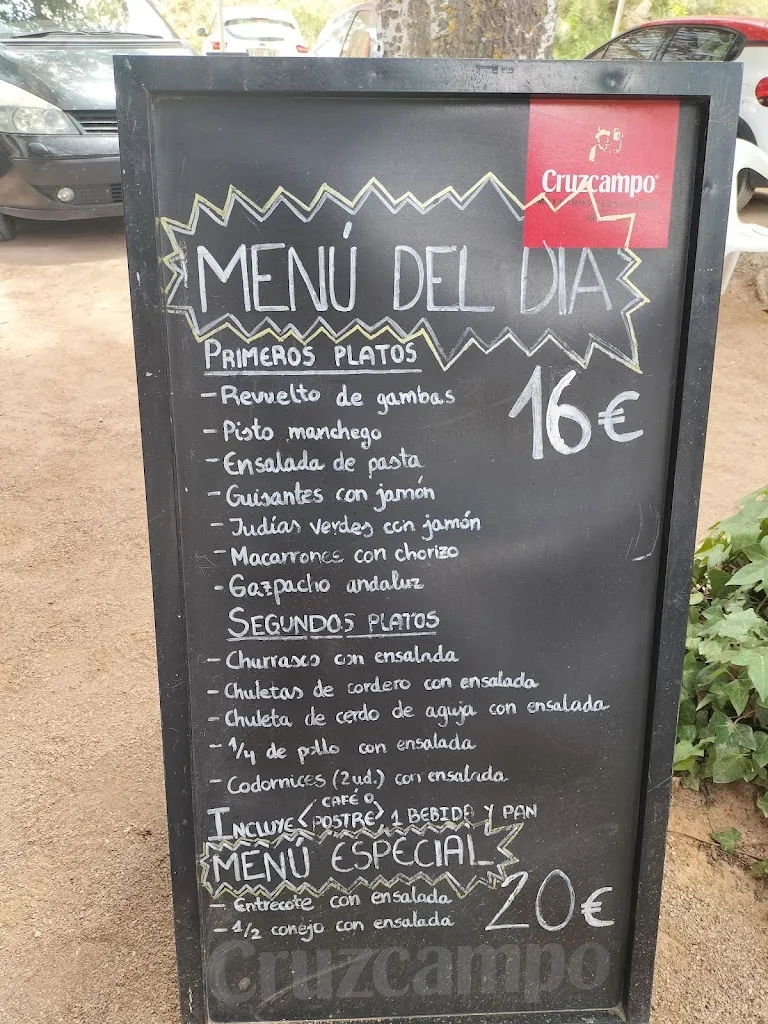 Cruzcampo
MENÚ DEL DIA
PRIMEROS PLATOS
16€
- Revuelto de gambas
- Pisto manchego
- Ensalada de pasta
- Guisantes con jamón
- Judías verdes con jamón
- Macarrones con chorizo
- Gazpacho andaluz
SEGUNDOS PLATOS
- Churrasco con ensalada
- Chuletas de cordero con ensalada
- Chuleta de cerdo de aguja con ensalada
- 1/4 de pollo con ensalada
- Codornices (2ud.) con ensalada
INCLUYE < CAFÉ O POSTRE > 1 BEBIDA Y PAN
MENÚ ESPECIAL
20€
- Entrecote con ensalada
- 1/2 conejo con ensalada
Cruzcampo